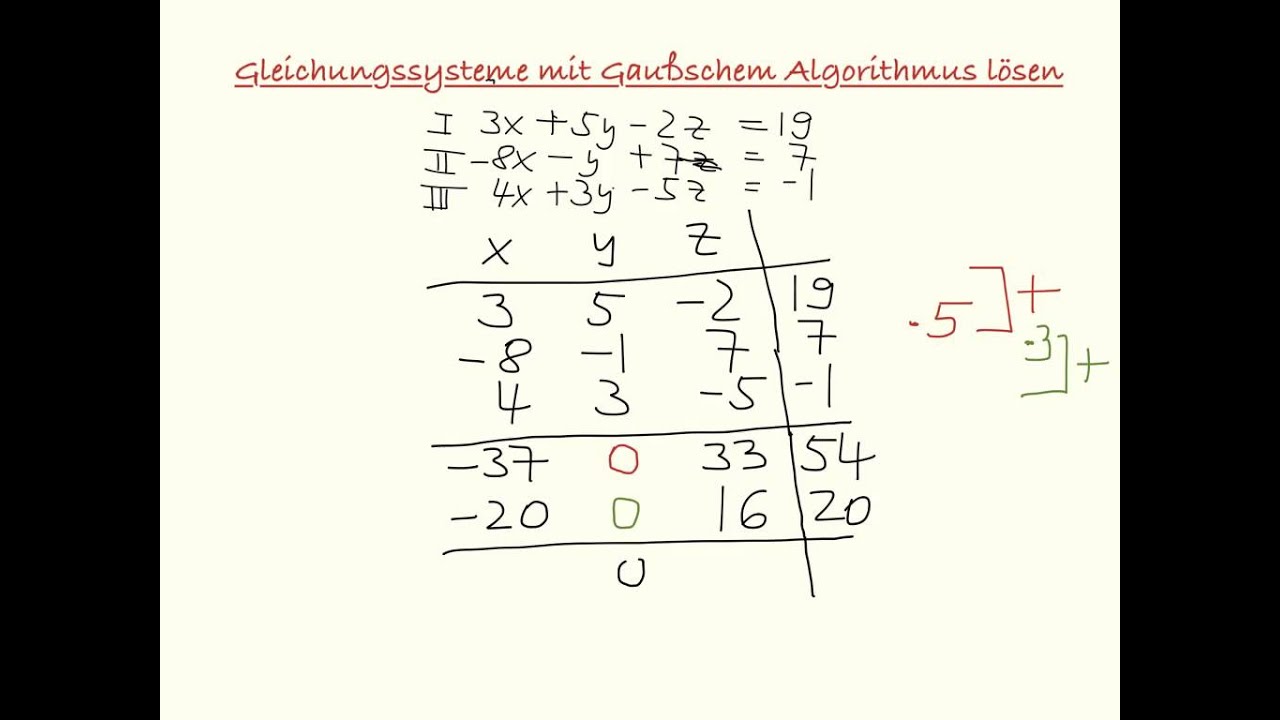 Gleichungssysteme mit Gaußschem Algorithmus lösen
I 3x + 5y - 2z = 19
II -8x - y + 7z = 7
III 4x + 3y - 5z = -1
x y z
3 5 -2 19
-8 -1 7 7
4 3 -5 -1
·5 ] +
·3 ] +
-37 0 33 54
-20 0 16 20
0